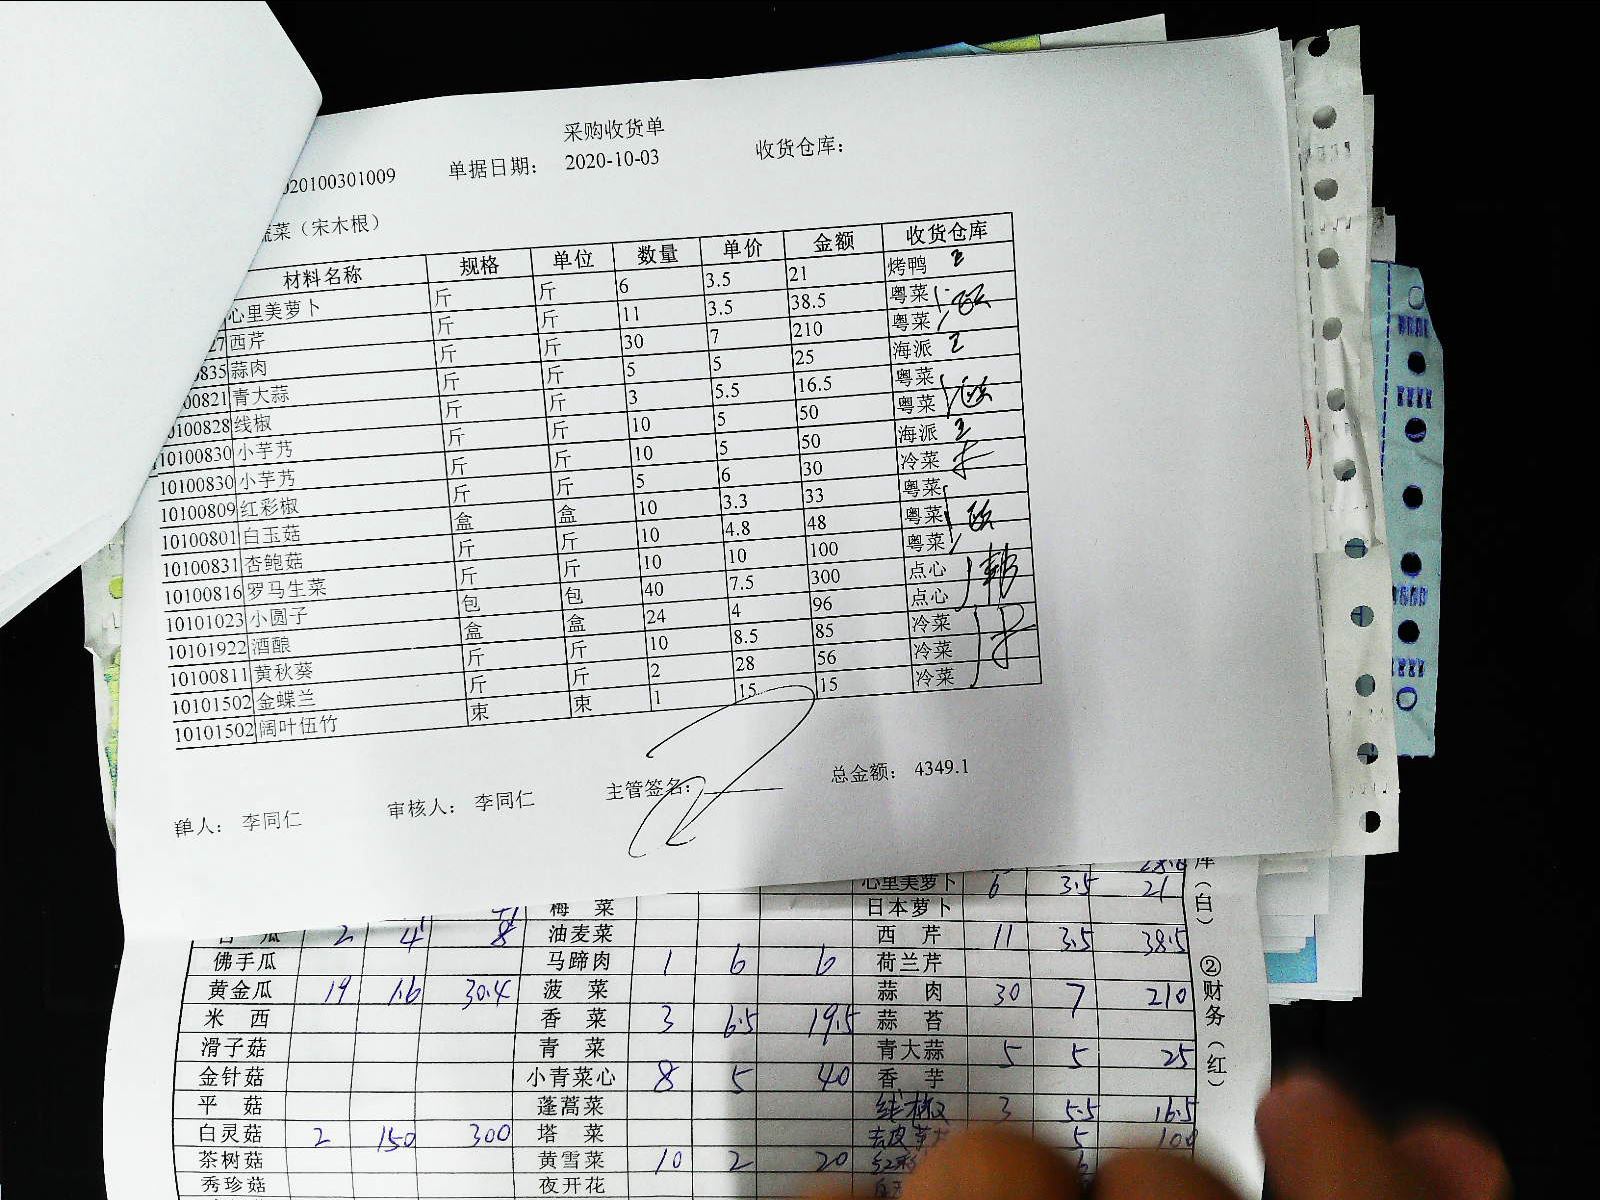 采购收货单
020100301009 单据日期： 2020-10-03 收货仓库：
蔬菜（宋木根）
材料名称 规格 单位 数量 单价 金额 收货仓库
心里美萝卜 斤 斤 6 3.5 21 烤鸭
27 西芹 斤 斤 11 3.5 38.5 粤菜
0835 蒜肉 斤 斤 30 7 210 粤菜
00821 青大蒜 斤 斤 5 5 25 海派
0100828 线椒 斤 斤 3 5.5 16.5 粤菜
10100830 小芋艿 斤 斤 10 5 50 粤菜
10100830 小芋艿 斤 斤 10 5 50 海派
10100809 红彩椒 斤 斤 5 6 30 冷菜
10100801 白玉菇 盒 盒 10 3.3 33 粤菜
10100831 杏鲍菇 斤 斤 10 4.8 48 粤菜
10100816 罗马生菜 斤 斤 10 10 100 粤菜
10101023 小圆子 包 包 40 7.5 300 点心
10101922 酒酿 盒 盒 24 4 96 点心
10100811 黄秋葵 斤 斤 10 8.5 85 冷菜
10101502 金蝶兰 斤 斤 2 28 56 冷菜
10101502 阔叶伍竹 束 束 1 15 15 冷菜
单人： 李同仁 审核人： 李同仁 主管签名： 总金额： 4349.1
心里美萝卜 6 3.5 21
梅菜 日本萝卜
瓜 2 4 8 油麦菜 西芹 11 3.5 38.5
佛手瓜 马蹄肉 1 6 6 荷兰芹
黄金瓜 19 1.6 30.4 菠菜 蒜肉 30 7 210
米西 香菜 3 6.5 19.5 蒜苔
滑子菇 青菜 青大蒜 5 5 25
金针菇 小青菜心 8 5 40 香芋
平菇 蓬蒿菜 线椒 3 5.5 16.5
白灵菇 2 150 300 塔菜 5 100
茶树菇 黄雪菜 10 2 20
秀珍菇 夜开花
库（白）
②财务（红）